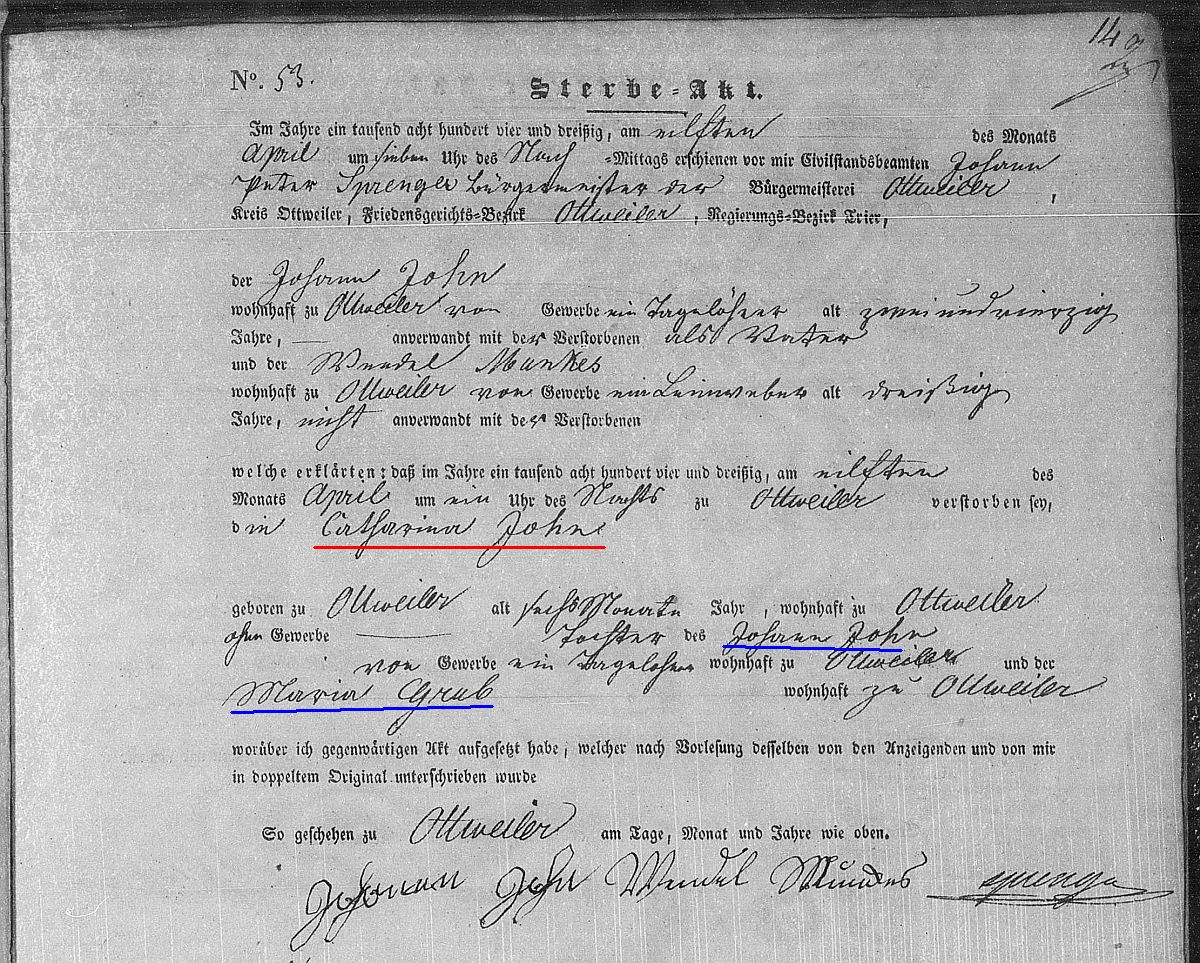 14
No. 53.
Sterbe-Akt.
Im Jahre ein tausend acht hundert vier und dreißig, am eilften des Monats
April um sieben Uhr des Nach -Mittags erschienen vor mir Civilstandsbeamten Johann
Peter Sprenger Bürgermeister der Bürgermeisterei Ottweiler,
Kreis Ottweiler, Friedensgerichts-Bezirk Ottweiler, Regierungs-Bezirk Trier,
der Johann John
wohnhaft zu Ottweiler von Gewerbe ein Tagelöhner alt zweiundvierzig
Jahre, — anverwandt mit der Verstorbenen als Vater
und der Wendel Munkes
wohnhaft zu Ottweiler von Gewerbe ein Leinweber alt dreißig
Jahre, nicht anverwandt mit der Verstorbenen
welche erklärten: daß im Jahre ein tausend acht hundert vier und dreißig, am eilften des
Monats April um ein Uhr des Nachts zu Ottweiler verstorben sey,
die Catharina John
geboren zu Ottweiler alt sechs Monate Jahr, wohnhaft zu Ottweiler
ohne Gewerbe — Tochter des Johann John
von Gewerbe ein Tagelöhner wohnhaft zu Ottweiler und der
Maria Grub wohnhaft zu Ottweiler
worüber ich gegenwärtigen Akt aufgesetzt habe, welcher nach Vorlesung desselben von den Anzeigenden und von mir
in doppeltem Original unterschrieben wurde
So geschehen zu Ottweiler am Tage, Monat und Jahre wie oben.
Johann John Wendel Mundes Sprenger